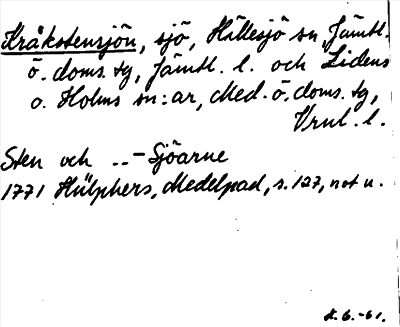 Kråkstensjön, sjö, Hällesjö sn, Jämtl.
ö. doms. tg, Jämtl. l. och Lidens
o. Holms sn:ar, Med. ö. doms. tg,
Vrnl. l.
Sten och ..-Sjöarne
1771 Hülphers, Medelpad, s. 127, not u.
H. G. -61.